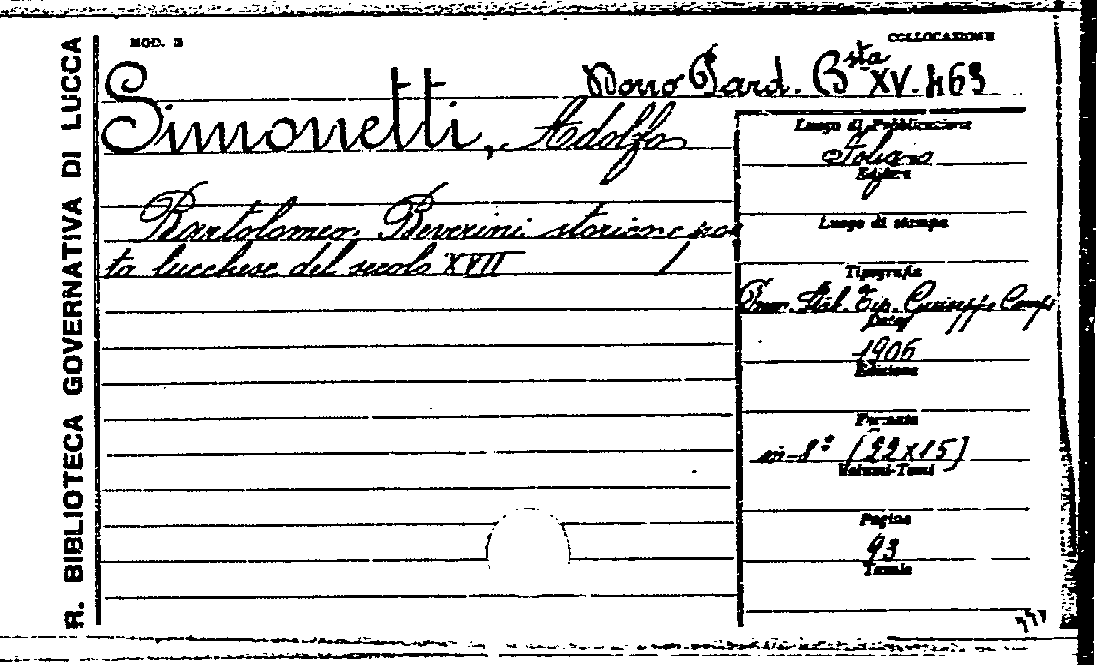 R. BIBLIOTECA GOVERNATIVA DI LUCCA
MOD. B
COLLOCAZIONE
Dono Pard. Bsta XV. 463
Simonetti, Adolfo
Bartolomeo Beverini storico e poe
ta lucchese del secolo XVII
Luogo di Pubblicazione
Foligno
Editore
Luogo di stampa
Tipografia
Prem. Stab. Tip. Giuseppe Campi
Data
1905
Edizione
Formato
in-8° [22x15]
Volumi-Tomi
Pagine
93
Tavole